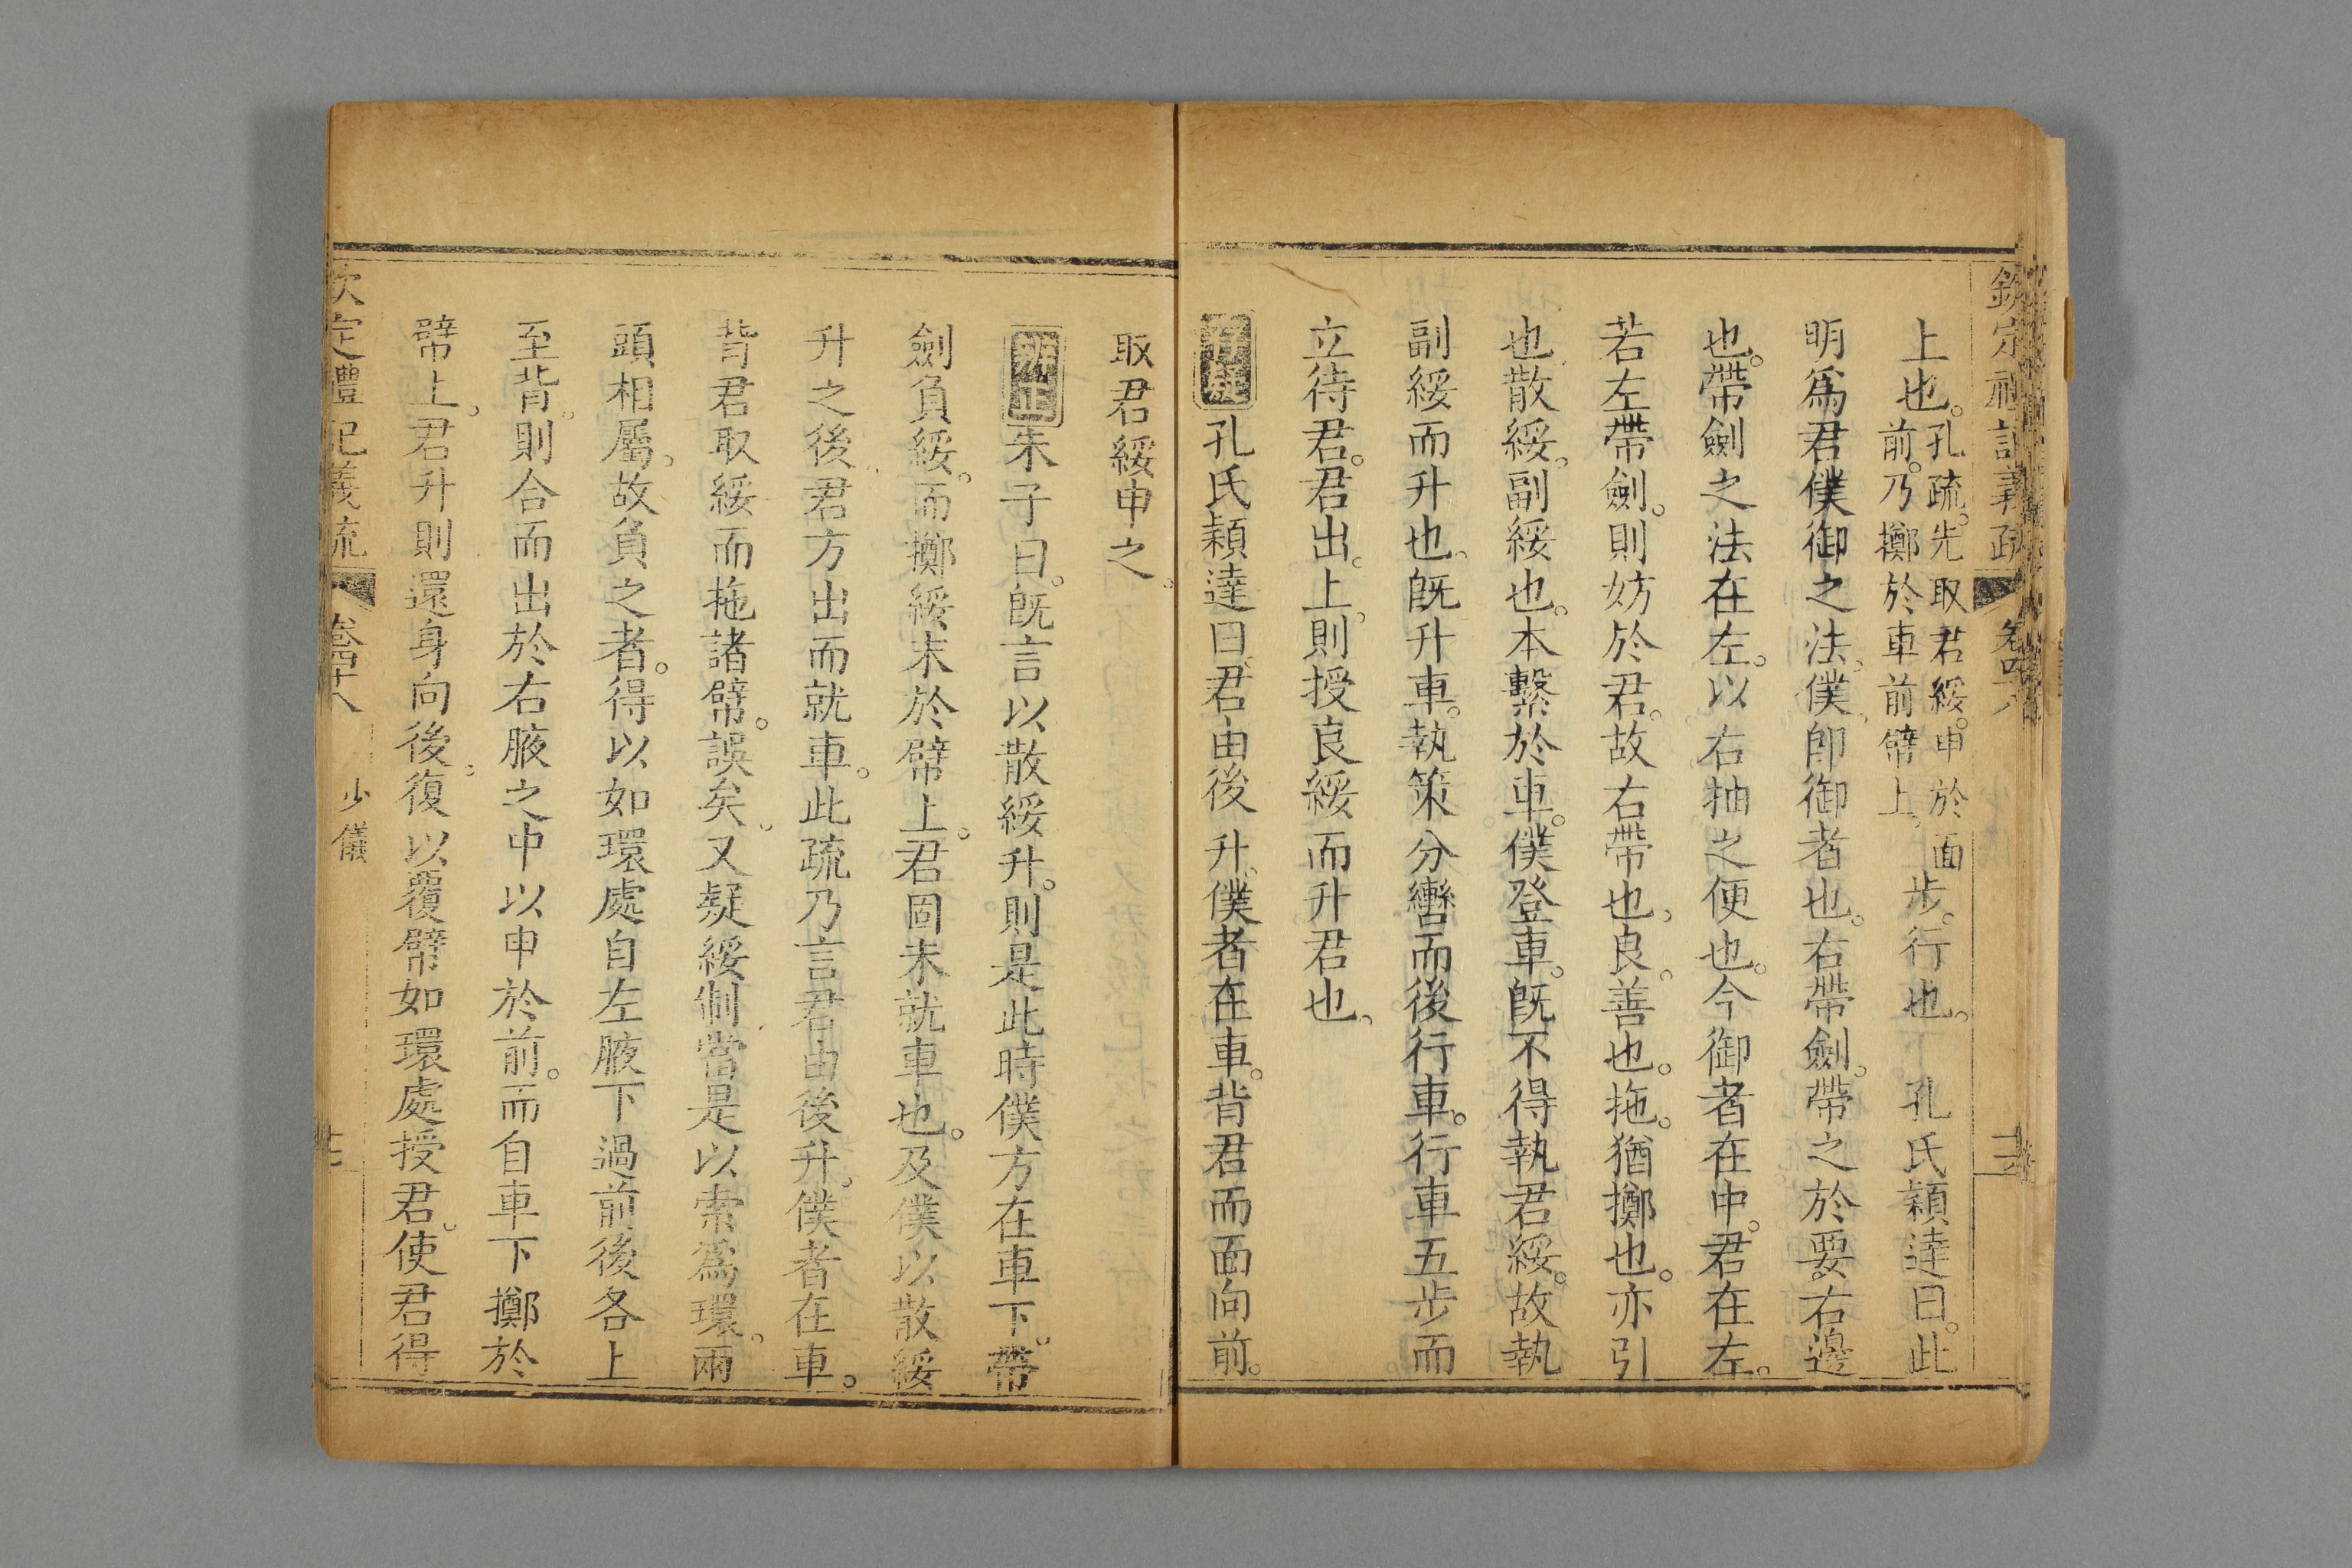 欽定禮記義疏 卷四十八
上也。孔疏。先取君綏。申於面
前。乃擲於車前幦上。步。行也。 孔氏穎達曰。此
明爲君僕御之法。僕。卽御者也。右帶劍。帶之於要。右邊
也。帶劍之法在左。以右抽之便也。今御者在中。君在左。
若左帶劍。則妨於君。故右帶也。良。善也。拖。猶擲也。亦引
也。散綏。副綏也。本繫於車。僕登車。旣不得執君綏。故執
副綏而升也。旣升車。執策分轡而後行車。行車五步而
立待君。君出。上。則授良綏而升君也。
存疑 孔氏穎達曰。君由後升。僕者在車。背君而面向前。
取君綏申之。
辨正 朱子曰。旣言以散綏升。則是此時僕方在車下。帶
劍負綏。而擲綏末於幦上。君固未就車也。及僕以散綏
升之後。君方出而就車。此疏乃言君由後升。僕者在車。
背君取綏而拖諸幦。誤矣。又疑綏制當是以索爲環。兩
頭相屬。故負之者。得以如環處自左腋下過前後各上
至背。則合而出於右腋之中以申於前。而自車下擲於
幦上。君升則還身向後。復以覆幦如環處授君。使君得
欽定禮記義疏 卷四十八 少儀